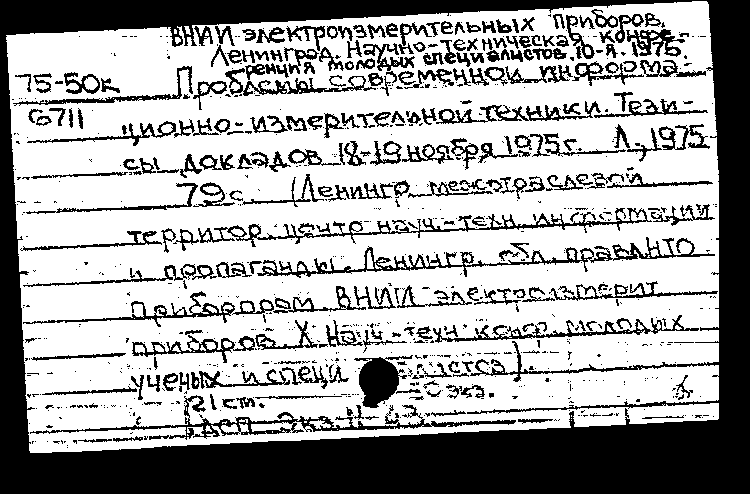 ВНИИ электроизмерительных приборов.
Ленинград. Научно-техническая конфе-
ренция молодых специалистов. 10-я. 1975.
75-50к Проблемы современной информа-
6711 ционно-измерительной техники. Тези-
сы докладов 18-19 ноября 1975 г. Л., 1975
79 с. (Ленингр. межотраслевой
территор. центр науч.-техн. информации
и пропаганды. Ленингр. обл. правл НТО
Приборпром ВНИИ электроизмерит
приборов. X науч.-техн конфер. молодых
ученых и специалистов).
21 ст. экз.
ДСП Экз. Н-43